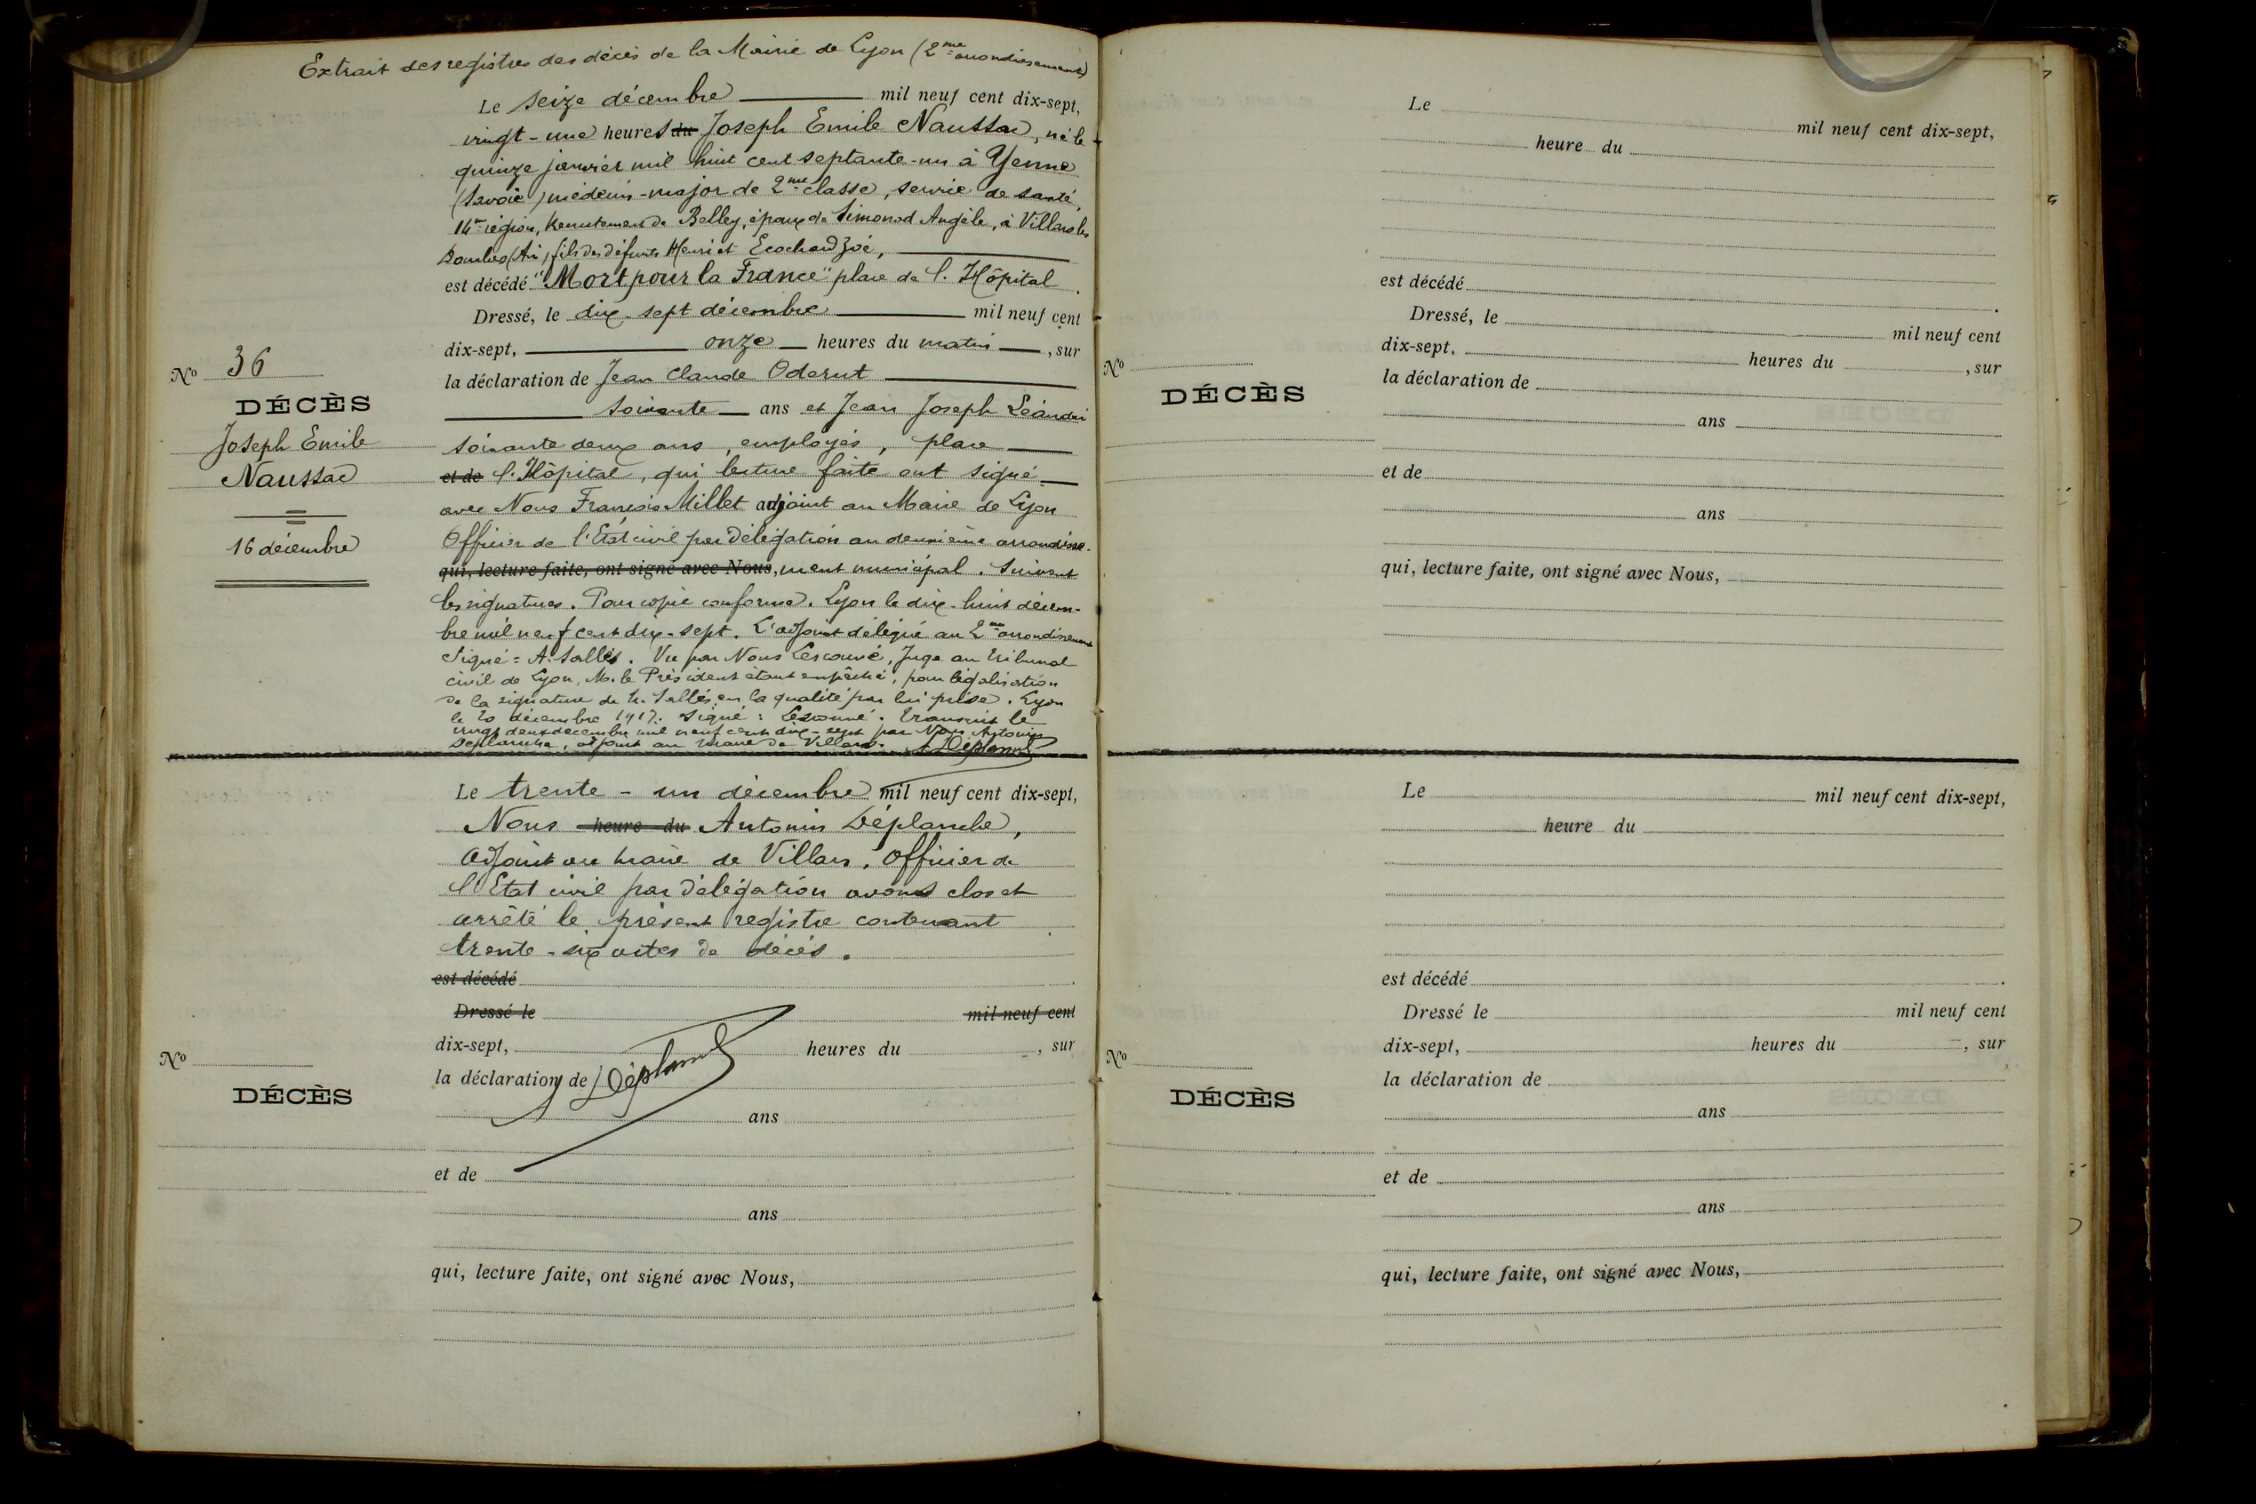 Extrait des registres des décès de la Mairie de Lyon (2me arrondissement)
Le seize décembre mil neuf cent dix-sept,
vingt-une heures du Joseph Emile Naussac, né le
quinze janvier mil huit cent septante-un à Yenne
(Savoie) médecin-major de 2me classe, service de santé,
14me région, Recrutement de Belley, époux de Simonod Angèle, à Villars les
Dombes (Ain) fils des défunts Henri et Ecochard Zoé,
est décédé "Mort pour la France" place de l'Hôpital.
Dressé, le dix-sept décembre mil neuf cent
dix-sept, onze heures du matin, sur
la déclaration de Jean Claude Oderut
soixante ans et Jean Joseph Léandri
soixante deux ans, employés, place
et de l'Hôpital, qui lecture faite ont signé
avec Nous François Millet adjoint au Maire de Lyon
Officier de l'Etat civil par délégation au deuxième arrondisse-
qui, lecture faite, ont signé avec Nous, ment municipal. Suivent
les signatures. Pour copie conforme. Lyon le dix-huit décem-
bre mil neuf cent dix-sept. L'adjoint délégué au 2me arrondissement
Signé: A. Sallès. Vu par Nous Lescouvé, Juge au tribunal
civil de Lyon, M. le Président étant empêché, pour légalisation
de la signature de M. Sallès, en la qualité par lui prise. Lyon
le 20 décembre 1917. Signé: Lescouvé. Transcrit le
vingt deux décembre mil neuf cent dix-sept par Nous Antonin
Déplanche, adjoint au maire de Villars. Déplanche
No 36
DÉCÈS
Joseph Emile
Naussac
16 décembre
Le trente-un décembre mil neuf cent dix-sept,
Nous heure du Antonin Déplanche,
adjoint au maire de Villars, officier de
l'Etat civil par délégation avons clos et
arrêté le présent registre contenant
trente-six actes de décès.
est décédé
Dressé le mil neuf cent
dix-sept, heures du , sur
la déclaration de Déplanche
ans
et de
ans
qui, lecture faite, ont signé avec Nous,
No
DÉCÈS
Le mil neuf cent dix-sept,
heure du
est décédé .
Dressé, le mil neuf cent
dix-sept, heures du , sur
la déclaration de
ans
et de
ans
qui, lecture faite, ont signé avec Nous,
No
DÉCÈS
Le mil neuf cent dix-sept,
heure du
est décédé .
Dressé le mil neuf cent
dix-sept, heures du , sur
la déclaration de
ans
et de
ans
qui, lecture faite, ont signé avec Nous,
No
DÉCÈS